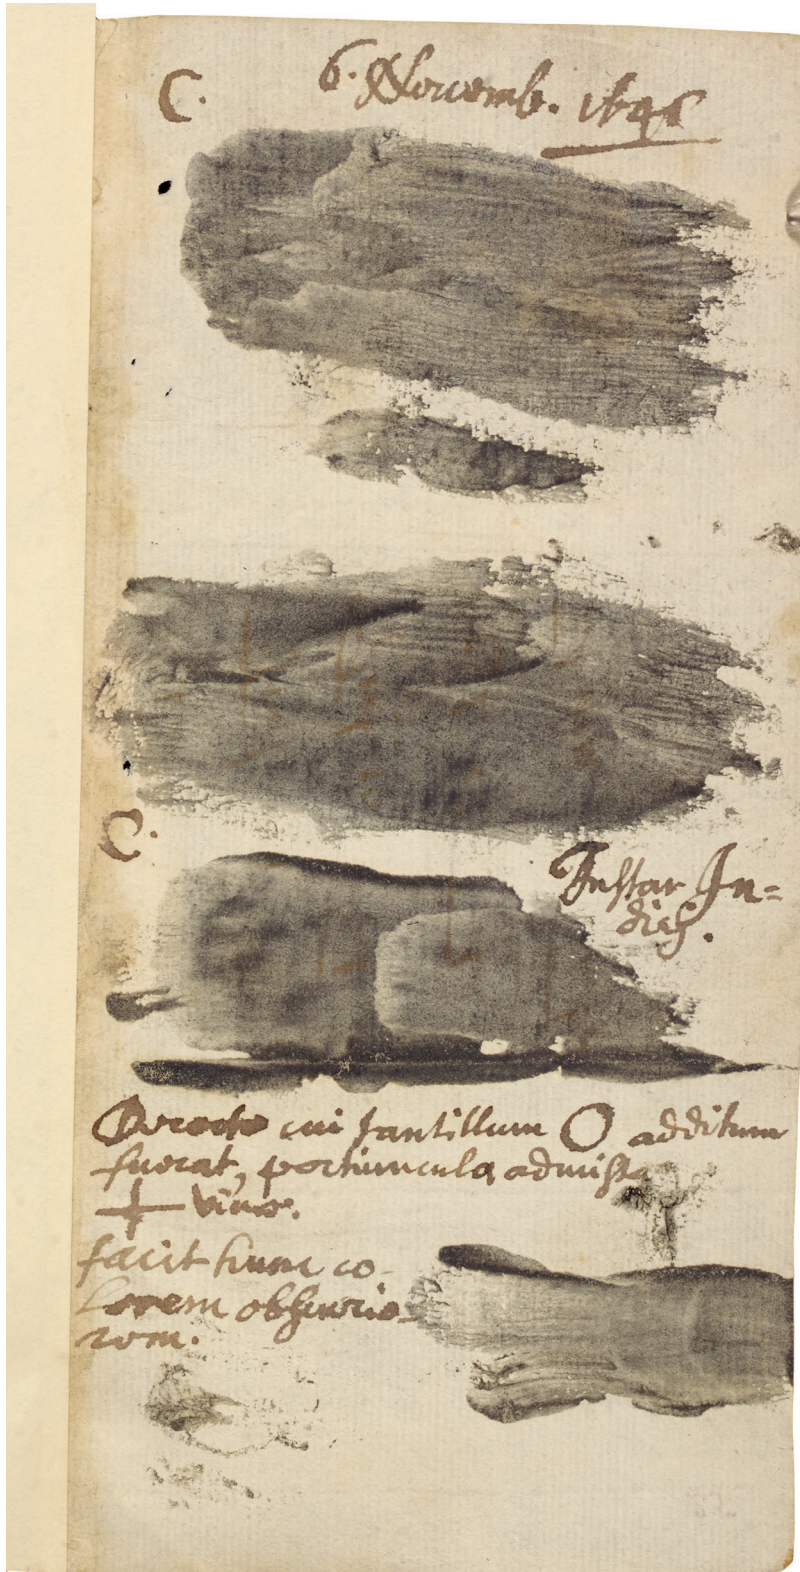 C. 6. Novemb. 1646
C.
Instar In=
dich.
cui tantillum O additum
fuerat, portiuncula admissa
+
facit hunc co-
lorem obscurio-
rem.